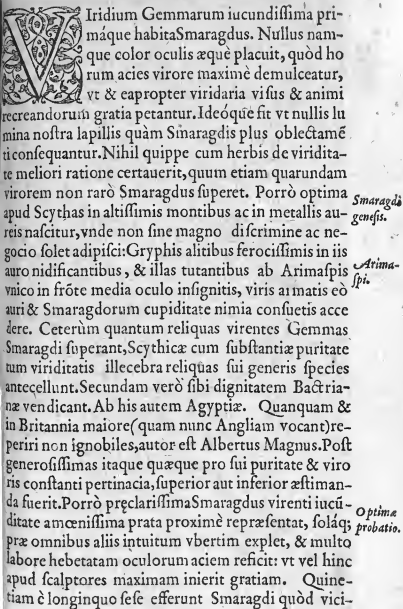 VIridium Gemmarum iucundiſſima pri-
máque habitaSmaragdus. Nullus nam-
que color oculis æquè placuit, quòd ho
rum acies virore maximè demulceatur,
vt & eapropter viridaria viſus & animi
recreandorum gratia petantur. Ideóque fit vt nullis lu
mina noſtra lapillis quàm Smaragdis plus oblectamē
ti conſequantur. Nihil quippe cum herbis de viridita-
te meliori ratione certauerit, quum etiam quarundam
virorem non rarò Smaragdus ſuperet. Porrò optima
Smaragdi
geneſis.
apud Scythas in altiſſimis montibus ac in metallis au-
reis naſcitur, vnde non ſine magno diſcrimine ac ne-
gocio ſolet adipiſci: Gryphis alitibus ferociſſimis in iis
auro nidificantibus, & illas tutantibus ab Arimaſpis
Arima-
ſpi.
vnico in frōte media oculo inſignitis, viris armatis eò
auri & Smaragdorum cupiditate nimia conſuetis acce
dere. Ceterùm quantum reliquas virentes Gemmas
Smaragdi ſuperant, Scythicæ cum ſubſtantiæ puritate
tum viriditatis illecebra reliquas ſui generis ſpecies
antecellunt. Secundam verò ſibi dignitatem Bactria-
næ vendicant. Ab his autem Agyptiæ. Quanquam &
in Britannia maiore (quam nunc Angliam vocant) re-
periri non ignobiles, autor eſt Albertus Magnus. Poſt
generoſiſſimas itaque quæque pro ſui puritate & viro
ris conſtanti pertinacia, ſuperior aut inferior æſtiman-
da fuerit. Porrò pręclariſſima Smaragdus virenti iucū-
ditate amœniſſima prata proximè repræſentat, ſoláq;
Optimæ
probatio.
præ omnibus aliis intuitum vbertim explet, & multo
labore hebetatam oculorum aciem reficit: vt vel hinc
apud ſcalptores maximam inierit gratiam. Quine-
tiam è longinquo ſeſe efferunt Smaragdi quòd vici-